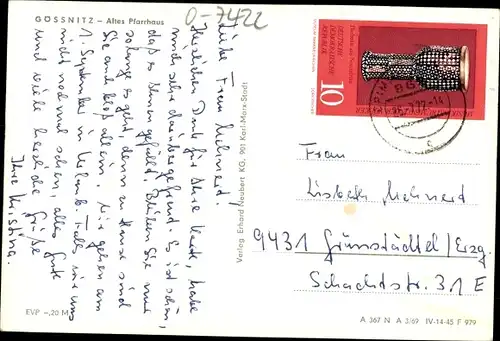 GÖSSNITZ – Altes Pfarrhaus
0-7422
Liebe Frau Mehnert!
Herzlichen Dank für Ihre Karte, habe
mich sehr darüber gefreut. Es ist schön,
daß es Ihnen gefällt. Bleiben Sie nur
solange es geht, denn zu Hause sind
Sie auch bloß allein. Wir gehen am
1. September in Urlaub. Falls wir uns
nicht nochmal sehen, alles Gute
und viele herzliche Grüße
Ihre Kristina.
EVP –,20 M
Verlag Erhard Neubert KG, 901 Karl-Marx-Stadt
DEUTSCHE
DEMOKRATISCHE
REPUBLIK
10
Frau
Lisbeth Mehnert
9431 Grünstädtel/Erzg.
Schachtstr. 31 E
A 367 N A 3/69 IV-14-45 F 979